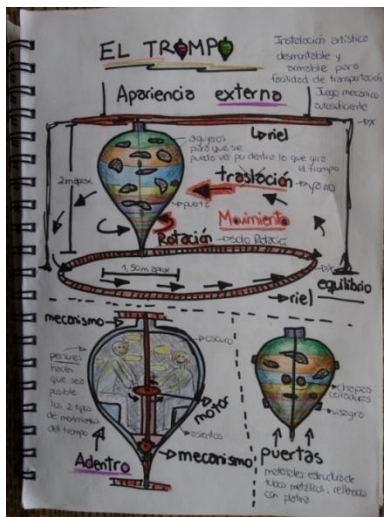 EL TROMPO
Instalación artística
desmontable y
armable para
facilidad de transportación
Juego mecánico
autosuficiente
Apariencia externa
riel
agujeros
para que se
pueda ver por dentro lo que gira
el trompo
2m aprox
traslación → ya no
puerta
Movimiento
Rotación → solo Rotació
1,50m aprox
equilibrio
riel
mecanismo
oscuro
personas
hacen
que sea
posible
los 2 tipos
de movimiento
del trompo
motor
asientos
mecanismo
Adentro
chapas
cerraduras
visagra
puertas
materiales: estructura de
tubos metálicos, rellenada
con platina